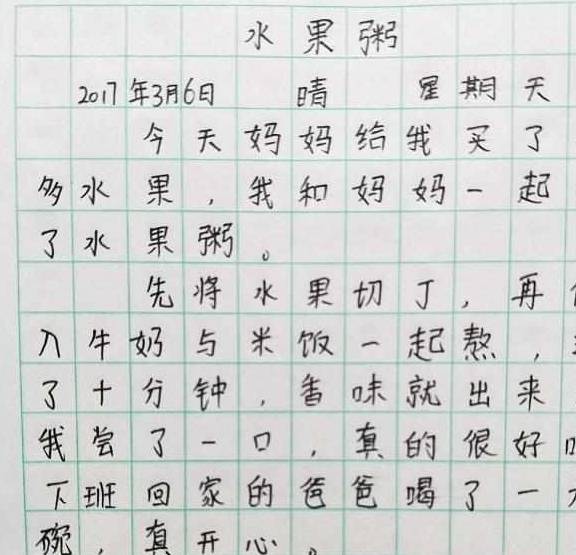 水果粥
2017年3月6日 晴 星期天
今天妈妈给我买了
多水果，我和妈妈一起
了水果粥。
先将水果切丁，再
入牛奶与米饭一起熬，
了十分钟，香味就出来
我尝了一口，真的很好
下班回家的爸爸喝了一
碗，真开心。